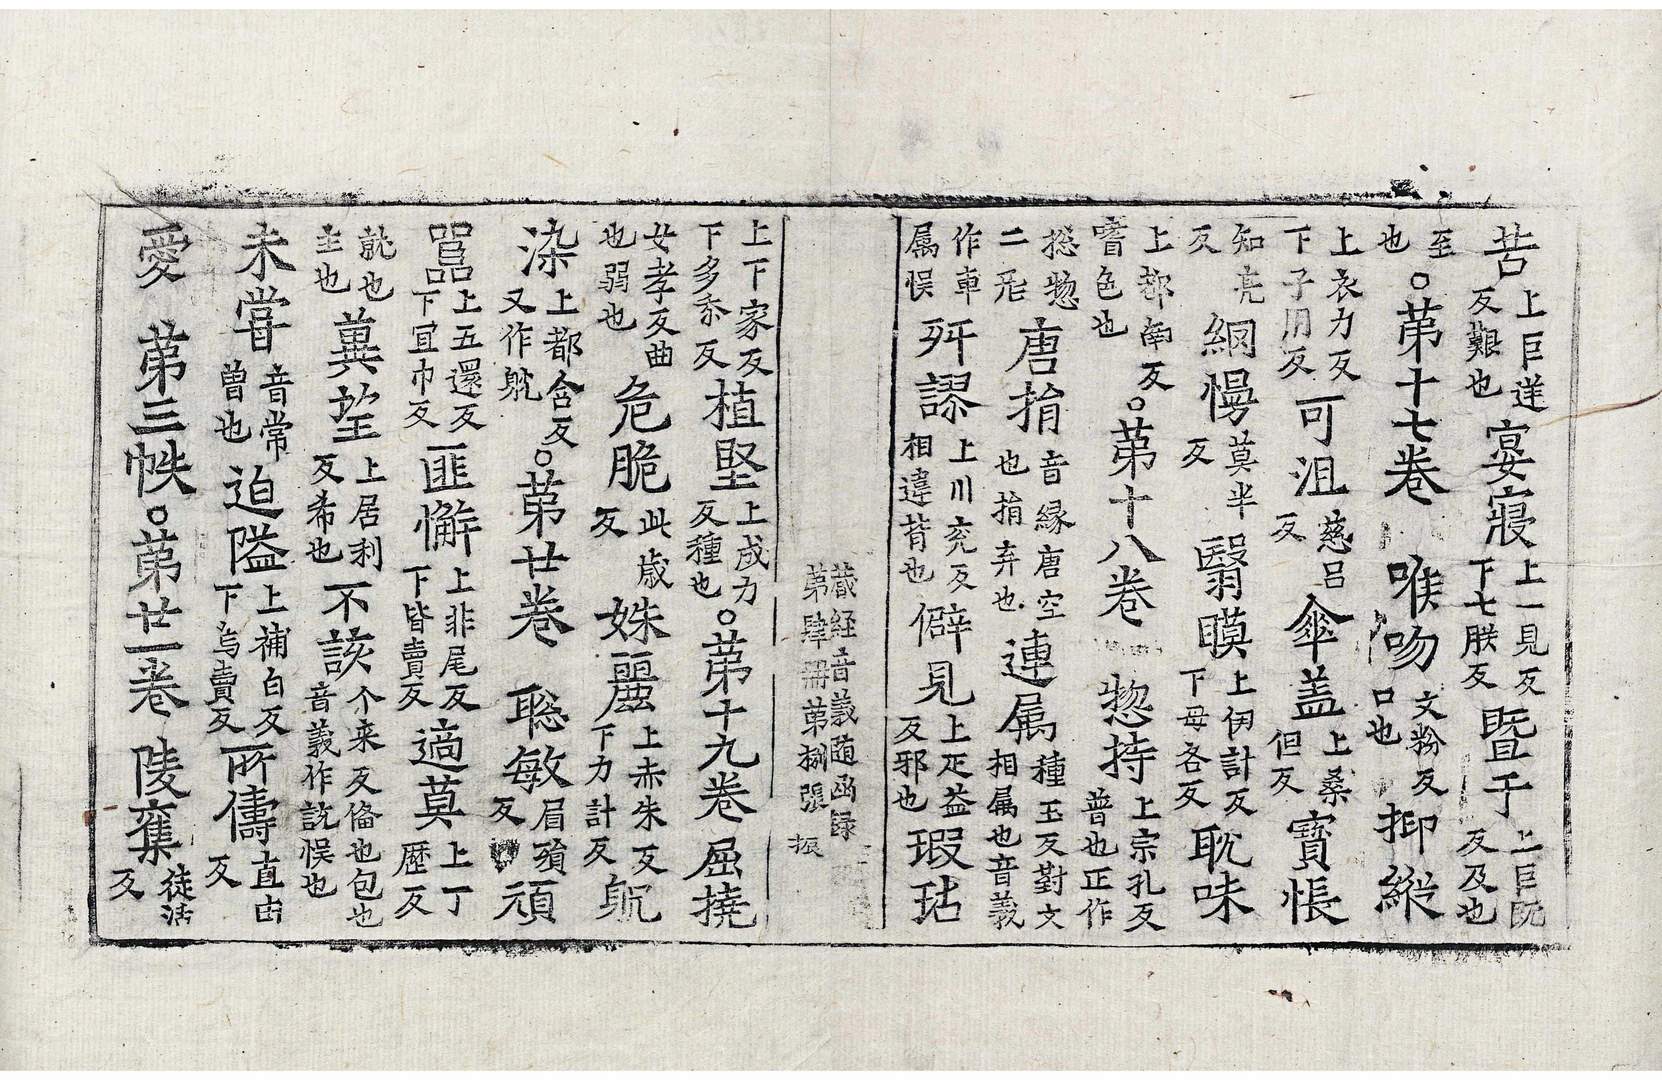 苦上巨逆反艱也宴寢上一見反下七朕反暨于上巨既反及也
至也○第十七卷 喉吻文粉反口也抑縱
上衣力反下子用反可沮慈吕反傘盖上桑但反寳悵
知亮反網慢莫半反翳瞙上伊計反下母各反耽味
上都南反嗜色也○第十八卷 惣持上宗孔反普也正作
揔惣二形唐捐音縁唐空也捐弃也連属種玉反對文相属也音義
作車属悮舛謬上川兖反相違背也僻見上疋益反邪也瑕玷
藏経音義随函録第肆冊第捌張 振
上下家反下多忝反植堅上成力反種也○第十九卷 屈撓
女孝反曲也弱也危脆此歳反姝麗上赤朱反下力計反躭
染上都含反又作躭○第廿卷 聡敏眉殞反頑
嚚上五還反下宜巾反匪懈上非尾反下皆賣反適莫上丁歷反
就也主也兾望上居利反希也不該个来反俻也包也音義作説悮也
未甞音常曽也迫隘上補白反下烏賣反所儔直由反
愛 第三帙○第廿一卷 陵奪徒活反